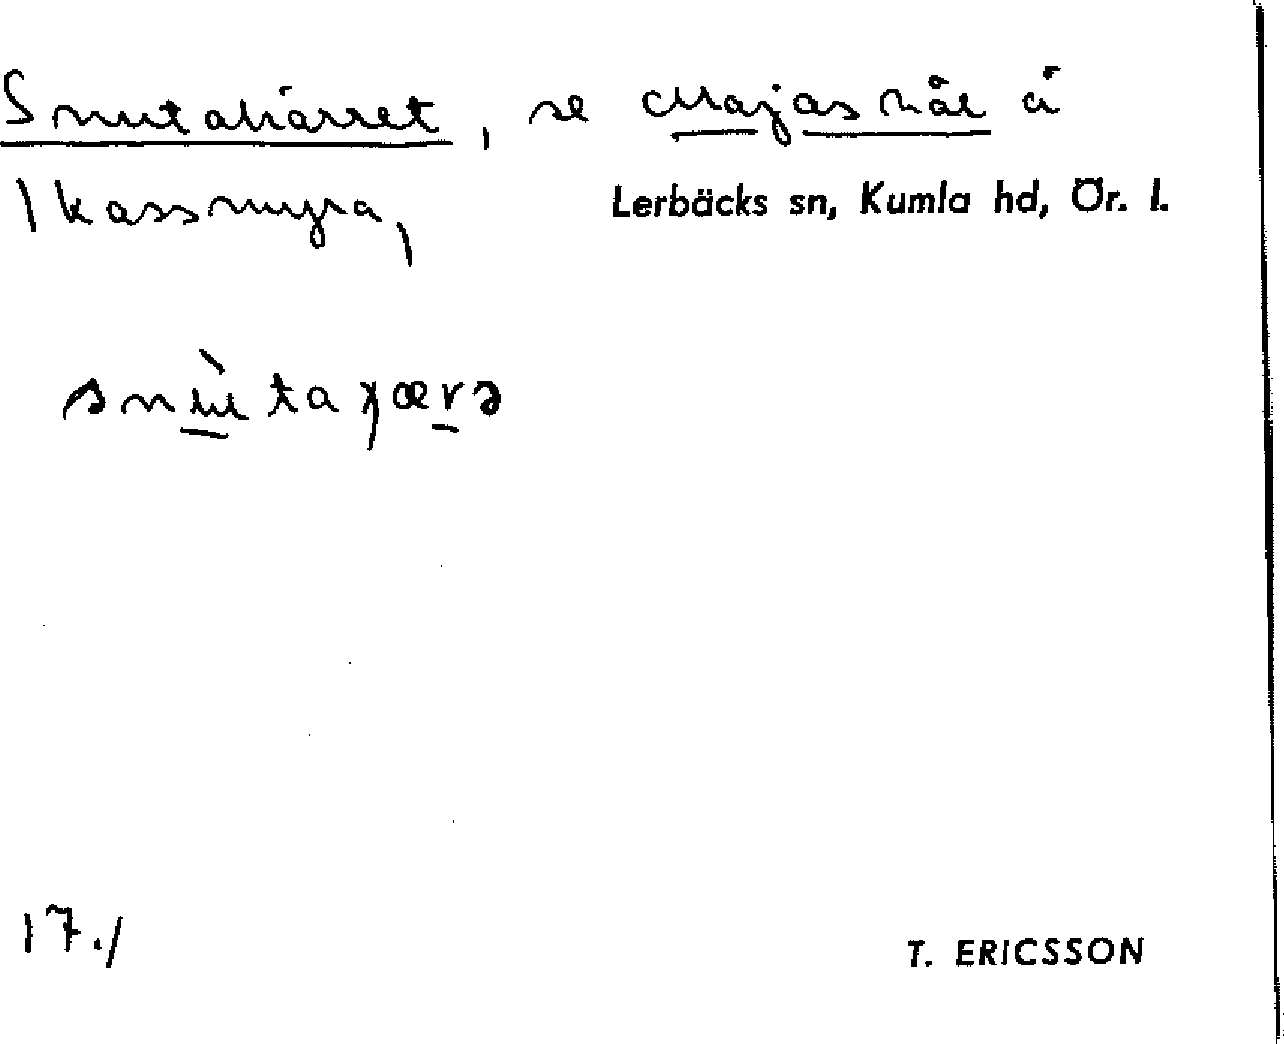 Snutakärret, se Majas kål å
|kassmyra,
Lerbäcks sn, Kumla hd, Ör. l.
snùtaɣærə
17./
T. ERICSSON